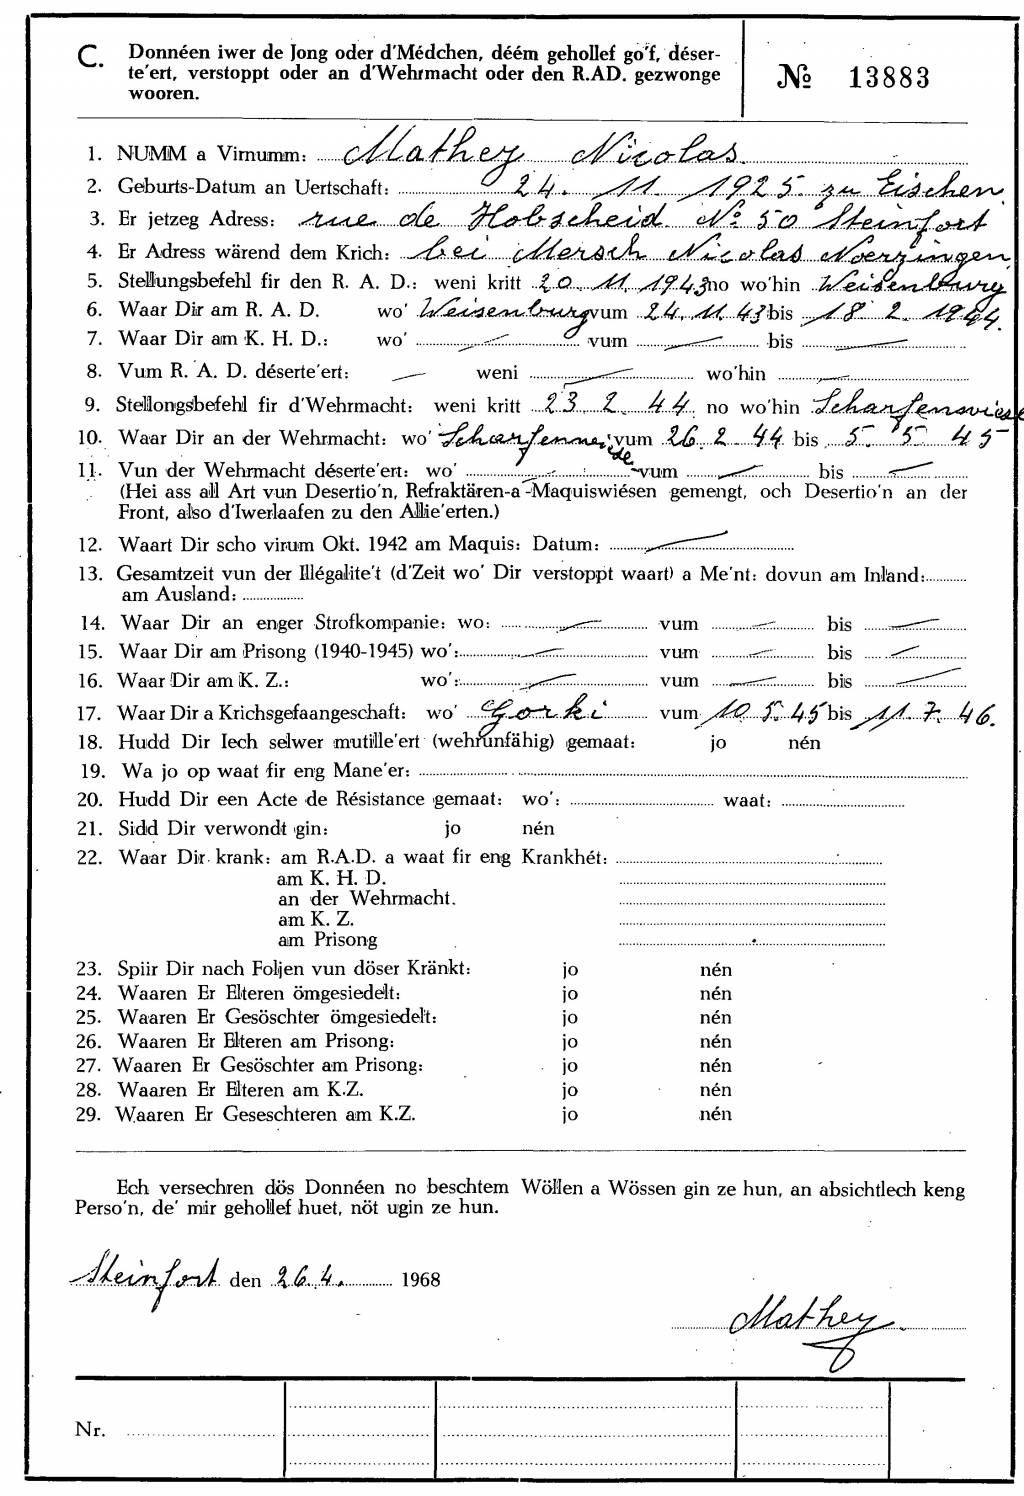 C. Donnéen iwer de Jong oder d'Médchen, déém gehollef go'f, déser-
te'ert, verstoppt oder an d'Wehrmacht oder den R.AD. gezwonge
wooren.
№ 13883
1. NUMM a Virnumm: Mathey Nicolas
2. Geburts-Datum an Uertschaft: 24. 11. 1925 zu Eischen
3. Er jetzeg Adress: rue de Hobscheid No 50 Steinfort
4. Er Adress wärend dem Krich: bei Mersch Nicolas Noerzingen
5. Stellungsbefehl fir den R. A. D.: weni kritt 20. 11. 1943 no wo'hin Weisenburg
6. Waar Dir am R. A. D. wo' Weisenburg vum 24. 11. 43 bis 18 2. 1944.
7. Waar Dir am K. H. D.: wo' — vum — bis —
8. Vum R. A. D. déserte'ert: — weni — wo'hin —
9. Stellongsbefehl fir d'Wehrmacht: weni kritt 23. 2. 44 no wo'hin Scharfenwiese
10. Waar Dir an der Wehrmacht: wo' Scharfenwiese vum 26. 2. 44 bis 5. 5. 45
11. Vun der Wehrmacht déserte'ert: wo' — vum — bis —
(Hei ass all Art vun Desertio'n, Refraktären-a-Maquiswiésen gemengt, och Desertio'n an der
Front, also d'Iwerlaafen zu den Allie'erten.)
12. Waart Dir scho virum Okt. 1942 am Maquis: Datum: —
13. Gesamtzeit vun der Illégalite't (d'Zeit wo' Dir verstoppt waart) a Me'nt: dovun am Inland:
am Ausland:
14. Waar Dir an enger Strofkompanie: wo: — vum — bis —
15. Waar Dir am Prisong (1940-1945) wo': — vum — bis —
16. Waar Dir am K. Z.: wo': — vum — bis —
17. Waar Dir a Krichsgefaangeschaft: wo' Gorki vum 10. 5. 45 bis 11. 7. 46.
18. Hudd Dir Iech selwer mutille'ert (wehrunfähig) gemaat: jo nén
19. Wa jo op waat fir eng Mane'er:
20. Hudd Dir een Acte de Résistance gemaat: wo': waat:
21. Sidd Dir verwondt gin: jo nén
22. Waar Dir krank: am R.A.D. a waat fir eng Krankhét:
am K. H. D.
an der Wehrmacht.
am K. Z.
am Prisong
23. Spiir Dir nach Foljen vun döser Kränkt: jo nén
24. Waaren Er Elteren ömgesiedelt: jo nén
25. Waaren Er Gesöschter ömgesiedelt: jo nén
26. Waaren Er Elteren am Prisong: jo nén
27. Waaren Er Gesöschter am Prisong: jo nén
28. Waaren Er Elteren am K.Z. jo nén
29. Waaren Er Geseschteren am K.Z. jo nén
Ech versechren dös Donnéen no beschtem Wöllen a Wössen gin ze hun, an absichtlech keng
Perso'n, de' mir gehollef huet, nöt ugin ze hun.
Steinfort den 26. 4. 1968
Mathey
Nr.